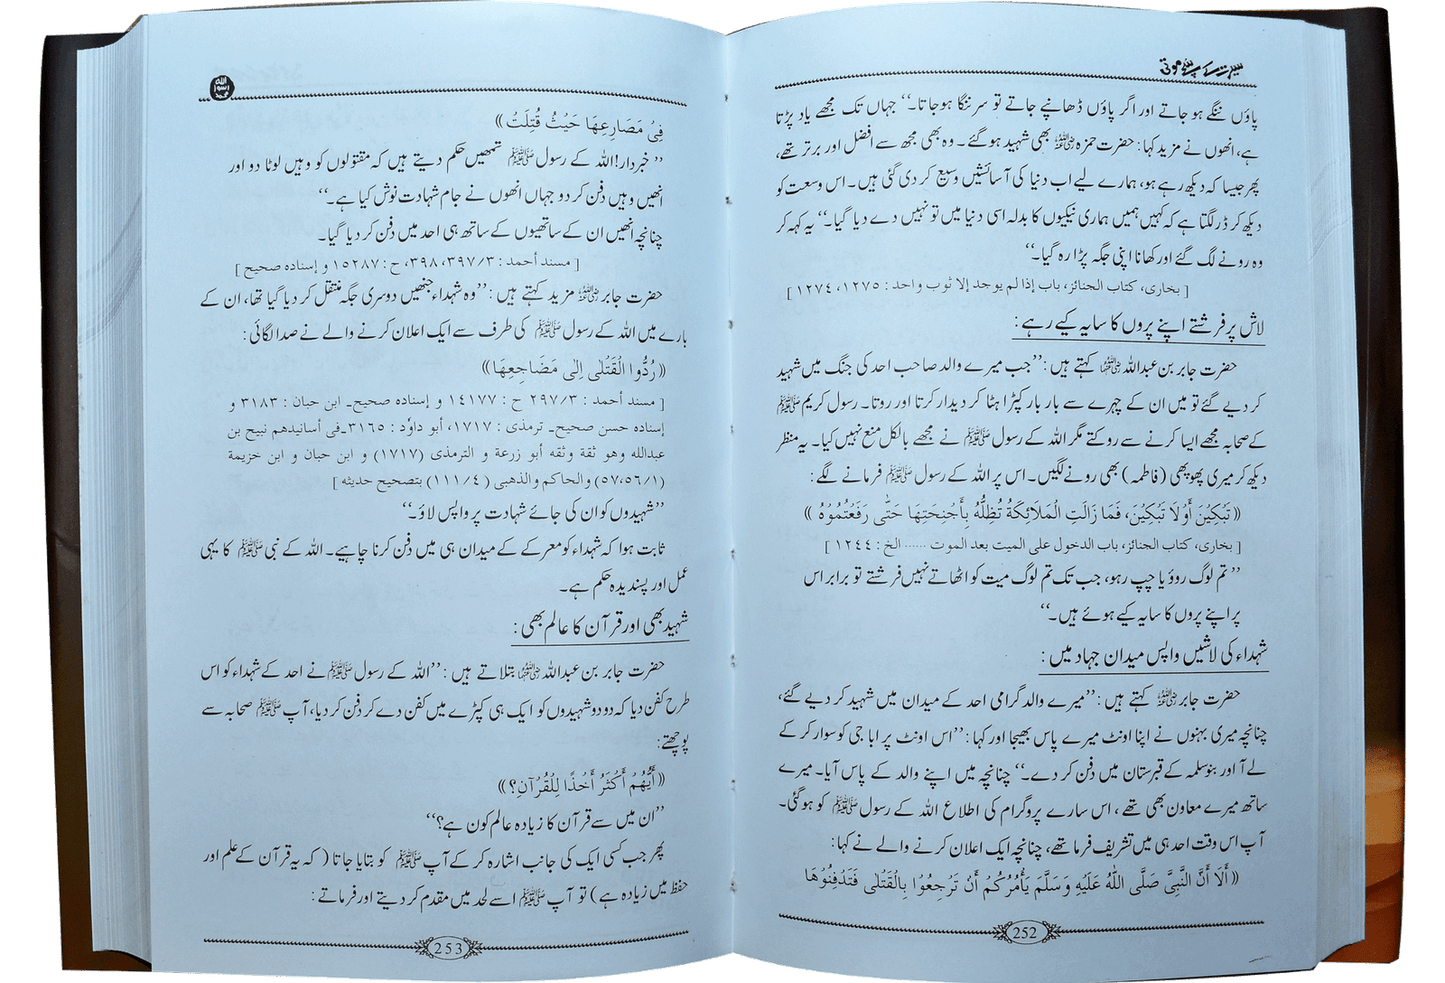 سیرت کے سچے موتی
پاؤں ننگے ہو جاتے اور اگر پاؤں ڈھانپے جاتے تو سر ننگا ہو جاتا۔‘‘ جہاں تک مجھے یاد پڑتا
ہے، انھوں نے مزید کہا: حضرت حمزہ رضی اللہ عنہ بھی شہید ہو گئے۔ وہ بھی مجھ سے افضل اور برتر تھے،
پھر جیسا کہ دیکھ رہے ہو، ہمارے لیے اب دنیا کی آسائشیں وسیع کر دی گئی ہیں۔ اس وسعت کو
دیکھ کر ڈر لگتا ہے کہ کہیں ہمیں ہماری نیکیوں کا بدلہ اسی دنیا میں تو نہیں دے دیا گیا۔‘‘ یہ کہہ کر
وہ رونے لگ گئے اور کھانا اپنی جگہ پڑا رہ گیا۔‘‘
[ بخاری، کتاب الجنائز، باب إذا لم یوجد إلا ثوب واحد : ۱۲۷۵، ۱۲۷٤ ]
لاش پر فرشتے اپنے پروں کا سایہ کیے رہے:
حضرت جابر بن عبداللہ رضی اللہ عنہما کہتے ہیں: ’’جب میرے والد صاحب احد کی جنگ میں شہید
کر دیے گئے تو میں ان کے چہرے سے بار بار کپڑا ہٹا کر دیدار کرتا اور روتا۔ رسول کریم ﷺ
کے صحابہ مجھے ایسا کرنے سے روکتے مگر اللہ کے رسول ﷺ نے مجھے بالکل منع نہیں کیا۔ یہ منظر
دیکھ کر میری پھوپھی (فاطمہ) بھی رونے لگیں۔ اس پر اللہ کے رسول ﷺ فرمانے لگے:
« تَبْكِيْنَ أَوْ لَا تَبْكِيْنَ، فَمَا زَالَتِ الْمَلَائِكَةُ تُظِلُّهُ بِأَجْنِحَتِهَا حَتّٰى رَفَعْتُمُوْهُ »
[ بخاری، کتاب الجنائز، باب الدخول علی المیت بعد الموت ...... الخ : ۱۲٤٤ ]
’’تم لوگ روؤ یا چپ رہو، جب تک تم لوگ میت کو اٹھاتے نہیں فرشتے تو برابر اس
پر اپنے پروں کا سایہ کیے ہوئے ہیں۔‘‘
شہداء کی لاشیں واپس میدان جہاد میں:
حضرت جابر رضی اللہ عنہ کہتے ہیں: ’’میرے والد گرامی احد کے میدان میں شہید کر دیے گئے،
چنانچہ میری بہنوں نے اپنا اونٹ میرے پاس بھیجا اور کہا: ’’اس اونٹ پر ابا جی کو سوار کر کے
لے آ اور بنو سلمہ کے قبرستان میں دفن کر دے۔‘‘ چنانچہ میں اپنے والد کے پاس آیا۔ میرے
ساتھ میرے معاون بھی تھے، اس سارے پروگرام کی اطلاع اللہ کے رسول ﷺ کو ہو گئی۔
آپ اس وقت احد ہی میں تشریف فرما تھے، چنانچہ ایک اعلان کرنے والے نے کہا:
« أَلَا أَنَّ النَّبِيَّ صَلَّى اللّٰهُ عَلَيْهِ وَسَلَّمَ يَأْمُرُكُمْ أَنْ تَرْجِعُوْا بِالْقَتْلٰى فَتَدْفِنُوْهَا
252
اللہ رسول محمد
فِيْ مَصَارِعِهَا حَيْثُ قُتِلَتْ »
’’خبردار! اللہ کے رسول ﷺ تمھیں حکم دیتے ہیں کہ مقتولوں کو وہیں لوٹا دو اور
انھیں وہیں دفن کر دو جہاں انھوں نے جام شہادت نوش کیا ہے۔‘‘
چنانچہ انھیں ان کے ساتھیوں کے ساتھ ہی احد میں دفن کر دیا گیا۔
[ مسند أحمد : ۳/ ۳۹۷، ۳۹۸، ح : ۱۵۲۸۷ و إسنادہ صحیح ]
حضرت جابر رضی اللہ عنہ مزید کہتے ہیں: ’’وہ شہداء جنھیں دوسری جگہ منتقل کر دیا گیا تھا، ان کے
بارے میں اللہ کے رسول ﷺ کی طرف سے ایک اعلان کرنے والے نے صدا لگائی:
« رُدُّوا الْقَتْلٰى إِلٰى مَضَاجِعِهَا »
[ مسند أحمد : ۳/ ۲۹۷ ح : ۱٤۱۷۷ و إسنادہ صحیح۔ ابن حبان : ۳۱۸۳ و
إسنادہ حسن صحیح۔ ترمذی : ۱۷۱۷، أبو داوٗد : ۳۱٦۵۔فی أسانیدھم نبیح بن
عبداللہ وھو ثقة وثقه أبو زرعة و الترمذی (۱۷۱۷) و ابن حبان و ابن خزیمة
(۱/ ۵٦، ۵۷) والحاکم والذھبی (٤/ ۱۱۱) بتصحیح حدیثه ]
’’شہیدوں کو ان کی جائے شہادت پر واپس لاؤ۔‘‘
ثابت ہوا کہ شہداء کو معرکے کے میدان ہی میں دفن کرنا چاہیے۔ اللہ کے نبی ﷺ کا یہی
عمل اور پسندیدہ حکم ہے۔
شہید بھی اور قرآن کا عالم بھی:
حضرت جابر بن عبداللہ رضی اللہ عنہما بتلاتے ہیں: ’’اللہ کے رسول ﷺ نے احد کے شہداء کو اس
طرح کفن دیا کہ دو دو شہیدوں کو ایک ہی کپڑے میں کفن دے کر دفن کر دیا، آپ ﷺ صحابہ سے
پوچھتے:
« أَيُّهُمْ أَكْثَرُ أَخْذًا لِلْقُرْآنِ؟ »
’’ان میں سے قرآن کا زیادہ عالم کون ہے؟‘‘
پھر جب کسی ایک کی جانب اشارہ کر کے آپ ﷺ کو بتایا جاتا (کہ یہ قرآن کے علم اور
حفظ میں زیادہ ہے) تو آپ ﷺ اسے لحد میں مقدم کر دیتے اور فرماتے:
253